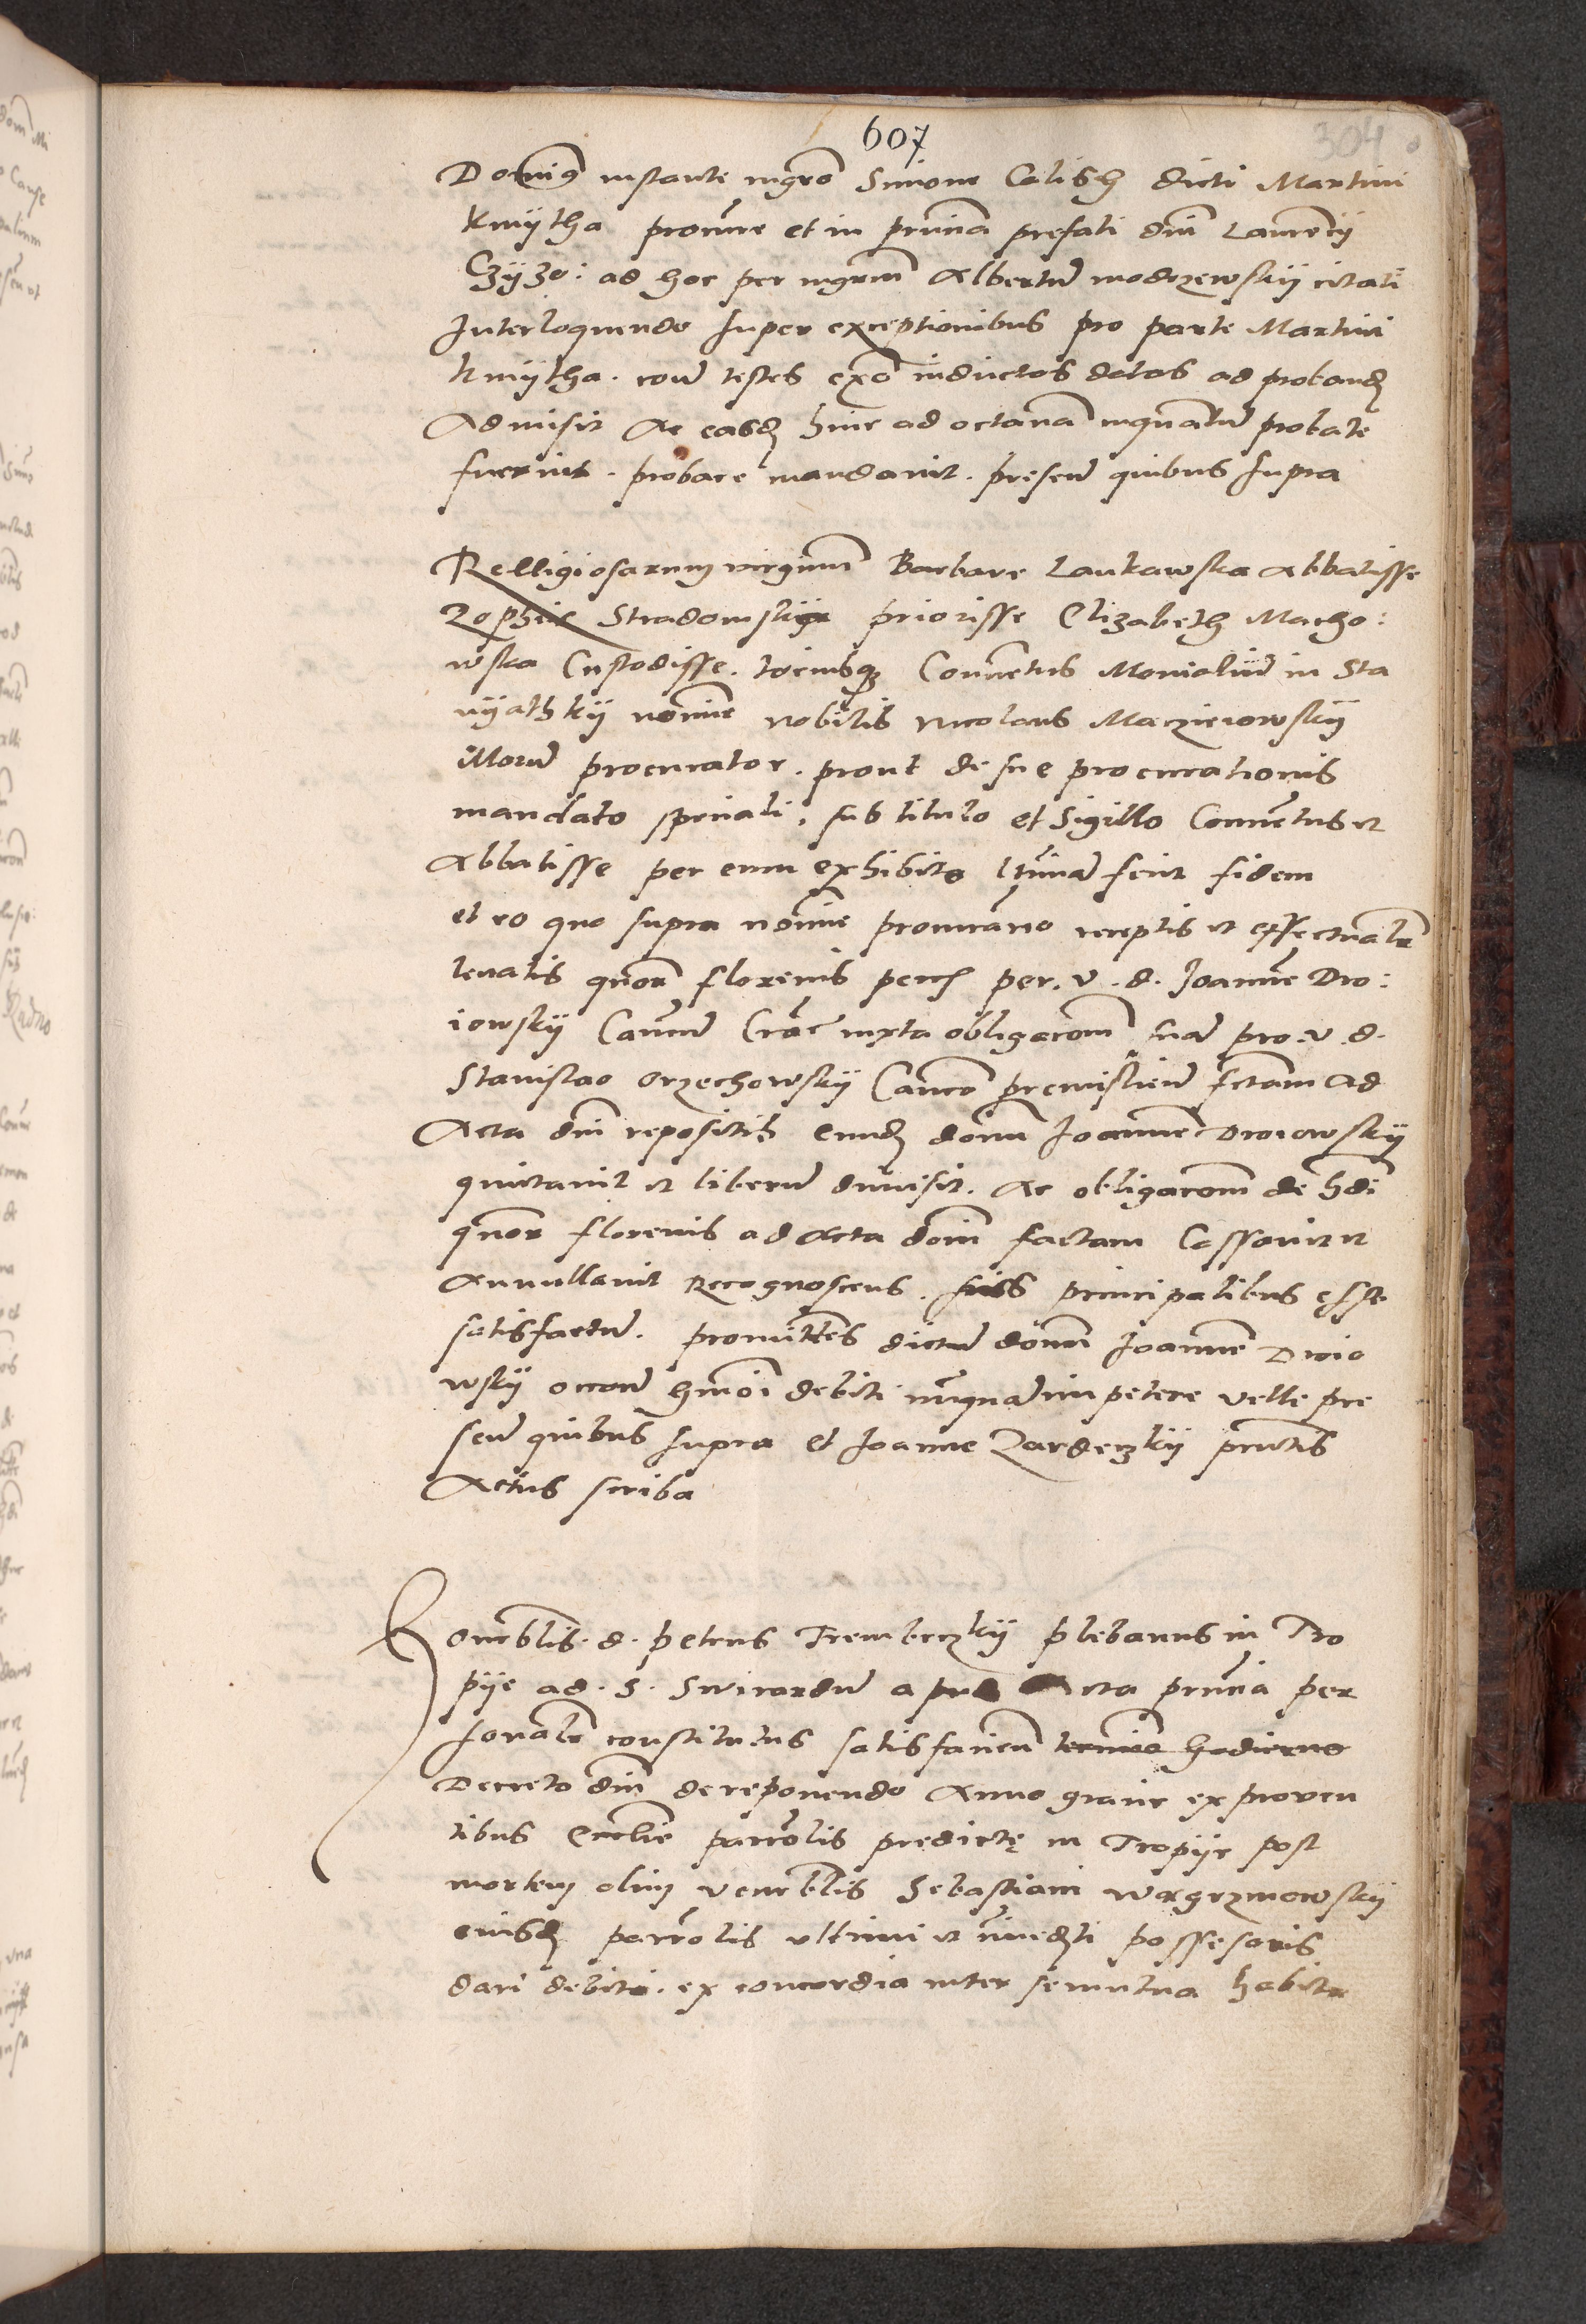 607
304
Dominus instante mgro Simone Calisch dicti Martini
Kmijtha procure et in princia prefati dni Laurencij
Czijzo: ad hoc per mgrum Albertum modrzewskij citati
Interloquendo super exceptionibus pro parte Martini
Kmijtha. contra testes ex inductos datas ad proband
Admisit Ac easd hinc ad octavam inquantum probate
fuerint. probare mandavit. presen quibus supra
Relligiosarum virginum Barbare Laukawska Abbatisse
Zophie Stradomskije priorisse Elizabeth Macho:
wska Custodisse. tociusque Conventus Monialium in Sta
nijathkij nomine nobilis Nicolaus Maczieiowskij
Illorum procurator. prout de sue procurationis
mandato speciali. sub titulo et Sigillo Conventus et
Abbatisse per eum exhibito ltimam fecit fidem
et eo quo supra nomine procurario receptis et effectualr
levatis quor florenis pecu per. v. d. Joannem Dro:
iowskij Canum Crac iuxta obligacom suam pro. v. d.
Stanislao Orzechowskij Canco premislien fctam ad
Acta dni repositis Eund donum Joannem Droiowskij
quictavit et liberum dimisit. Ac obligacom de hdi
quor florenis ad Acta doni factam Cassavit et
Annullavit Recognoscens. suis principalibus esse
satisfactum. promittens dictum donum Joannem Droio
wskij occone hmoi debiti nunquam impetere velle pre
sen quibus supra et Joanne Zardeczkij pnctis
Actus scriba
Honorblis. d. petrus Trembeczkij plebanus in Tro
pije ad. S. Swirardum apud Acta princia per
sonalr constitutus satisfaciens termino hodierno
Decreto dni de reponendo Anno gracie ex proven
tibus Ecclie parrolis predicte in Tropije post
mortem olim venerblis Sebastiani Wagrzinowskij
eiusd parrolis ultimi et immediti possessoris
dari debito. ex concordia inter se mutua habita